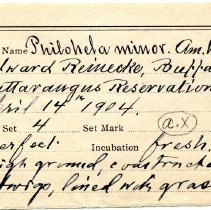 Name Philohela minor. Am. W
dward Reinecke, Buffa
ttaraugus Reservation
pril 14th 1904.
Set 4 Set Mark a.X
erfect Incubation fresh.
igh ground, constructe
twigs, lined with gras